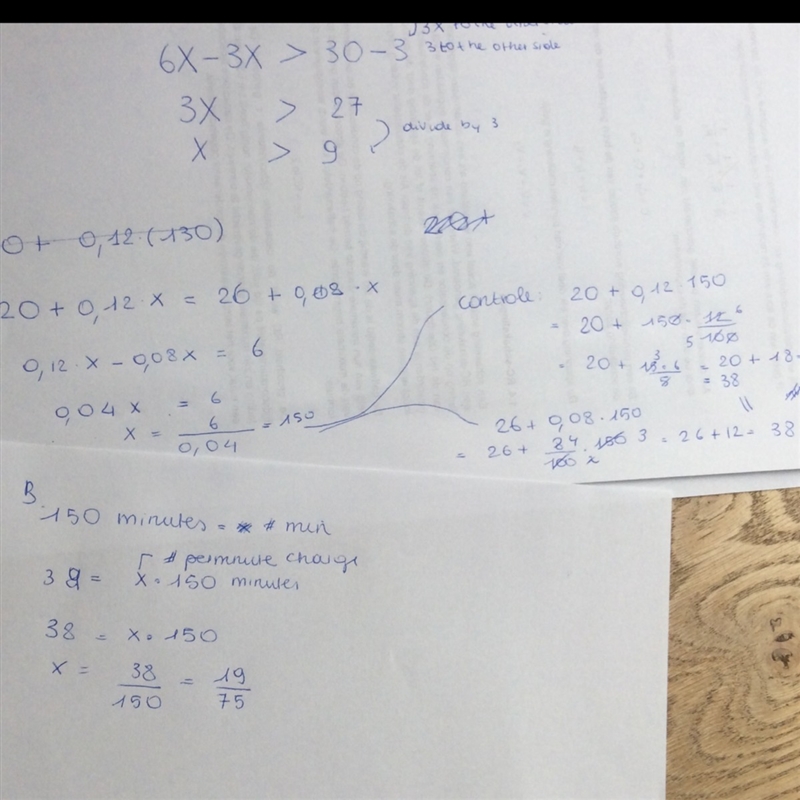 3X to the other
6X - 3X > 30 - 3 3 to the other side
3X > 27
X > 9 divide by 3
0 + 0,12 · (130)
20 + 0,12 · x = 26 + 0,08 · x
0,12 · x - 0,08x = 6
0,04 x = 6
x = 6 / 0,04 = 150
controle: 20 + 0,12 · 150
= 20 + 150 · 12 6 / 5 100
= 20 + 3 · 6 = 20 + 18
= 38
26 + 0,08 · 150
= 26 + 8 4 / 100 2 · 150 3 = 26 + 12 = 38
B.
150 minutes = # min
# per minute charge
38 = x · 150 minutes
38 = x · 150
x = 38 / 150 = 19 / 75